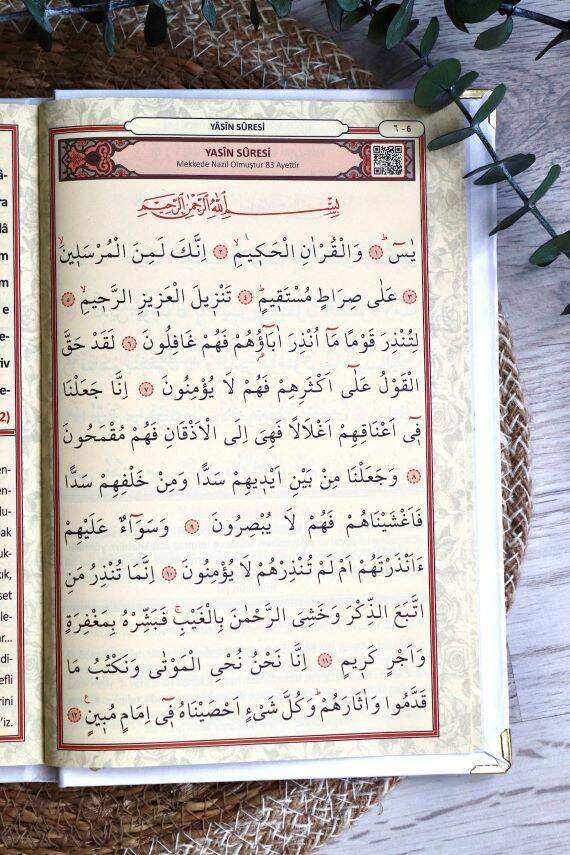 YÂSÎN SÛRESİ
٦ - 6
YASÎN SÛRESİ
Mekkede Nazil Olmuştur 83 Ayettir
بِسْمِ اللهِ الرَّحْمٰنِ الرَّحِيمِ
يٰسٓ ﴿١﴾ وَالْقُرْاٰنِ الْحَكِيمِ ﴿٢﴾ اِنَّكَ لَمِنَ الْمُرْسَلِينَ
﴿٣﴾ عَلٰى صِرَاطٍ مُسْتَقِيمٍ ﴿٤﴾ تَنْزِيلَ الْعَزِيزِ الرَّحِيمِ ﴿٥﴾
لِتُنْذِرَ قَوْمًا مَٓا اُنْذِرَ اٰبَٓاؤُ۬هُمْ فَهُمْ غَافِلُونَ ﴿٦﴾ لَقَدْ حَقَّ
الْقَوْلُ عَلٰٓى اَكْثَرِهِمْ فَهُمْ لَا يُؤْمِنُونَ ﴿٧﴾ اِنَّا جَعَلْنَا
فِٓي اَعْنَاقِهِمْ اَغْلَالًا فَهِيَ اِلَى الْاَذْقَانِ فَهُمْ مُقْمَحُونَ
﴿٨﴾ وَجَعَلْنَا مِنْ بَيْنِ اَيْدِيهِمْ سَدًّا وَمِنْ خَلْفِهِمْ سَدًّا
فَاَغْشَيْنَاهُمْ فَهُمْ لَا يُبْصِرُونَ ﴿٩﴾ وَسَوَٓاءٌ عَلَيْهِمْ
ءَاَنْذَرْتَهُمْ اَمْ لَمْ تُنْذِرْهُمْ لَا يُؤْمِنُونَ ﴿١٠﴾ اِنَّمَا تُنْذِرُ مَنِ
اتَّبَعَ الذِّكْرَ وَخَشِيَ الرَّحْمٰنَ بِالْغَيْبِۚ فَبَشِّرْهُ بِمَغْفِرَةٍ
وَاَجْرٍ كَرِيمٍ ﴿١١﴾ اِنَّا نَحْنُ نُحْيِ الْمَوْتٰى وَنَكْتُبُ مَا
قَدَّمُوا وَاٰثَارَهُمْۜ وَكُلَّ شَيْءٍ اَحْصَيْنَاهُ فِٓي اِمَامٍ مُبِينٍ ﴿١٢﴾